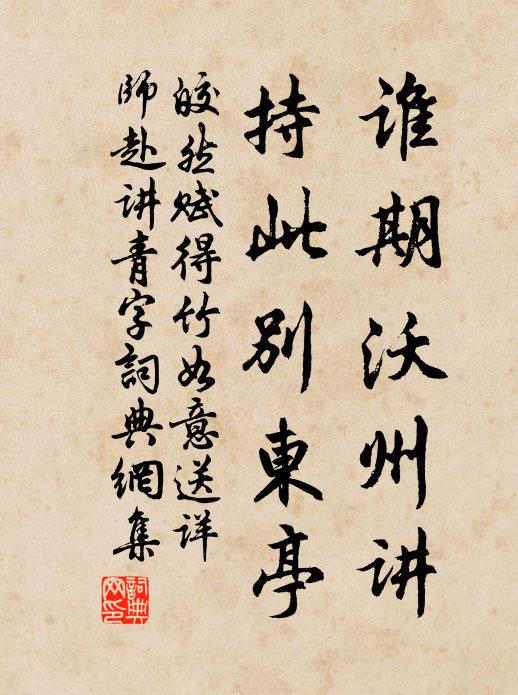 谁期沃州讲
持此别東亭
皎然赋得竹如意送详
師赴讲青字詞典網集
詞典
网印